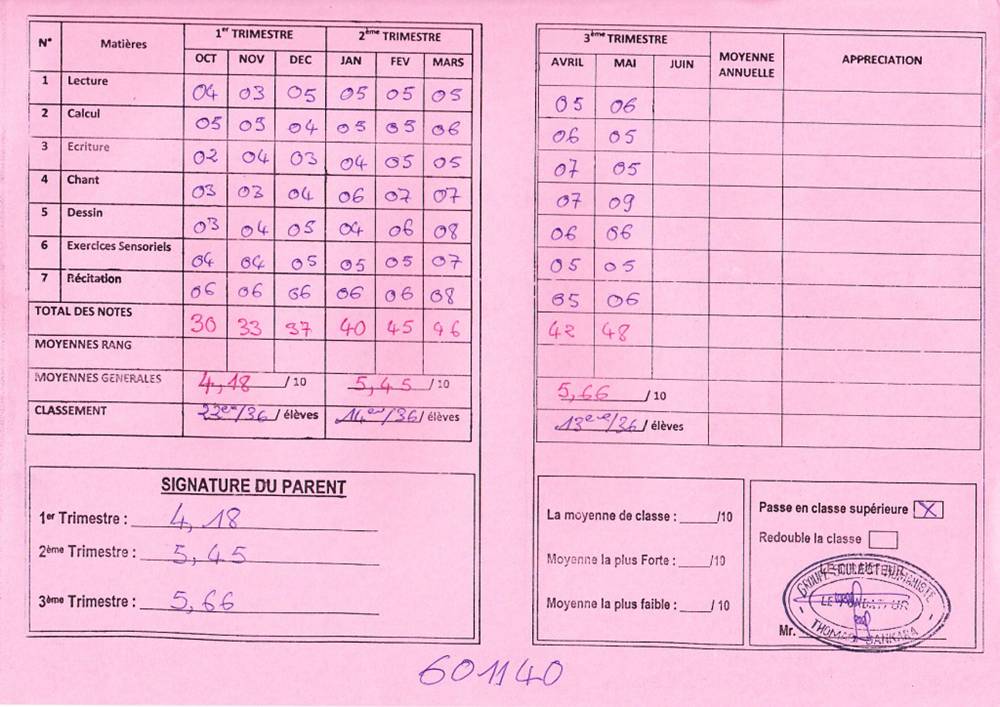 N° Matières 1er TRIMESTRE 2ème TRIMESTRE
OCT NOV DEC JAN FEV MARS
1 Lecture 04 03 05 05 05 05
2 Calcul 05 05 04 05 05 06
3 Ecriture 02 04 03 04 05 05
4 Chant 03 03 04 06 07 07
5 Dessin 03 04 05 04 06 08
6 Exercices Sensoriels 04 04 05 05 05 07
7 Récitation 06 06 06 06 06 08
TOTAL DES NOTES 30 33 37 40 45 46
MOYENNES RANG
MOYENNES GENERALES 4,18 /10 5,45 /10
CLASSEMENT 22e/36 / élèves 14e/36 / élèves
SIGNATURE DU PARENT
1er Trimestre : 4,18
2ème Trimestre : 5,45
3ème Trimestre : 5,66
3ème TRIMESTRE MOYENNE ANNUELLE APPRECIATION
AVRIL MAI JUIN
05 06
06 05
07 05
07 09
06 06
05 05
05 06
42 48
5,66 /10
13e/36 / élèves
La moyenne de classe : /10
Moyenne la plus Forte : /10
Moyenne la plus faible : / 10
Passe en classe supérieure X
Redouble la classe
LE FONDATEUR
THOMAS SANKARA
Mr.
601140